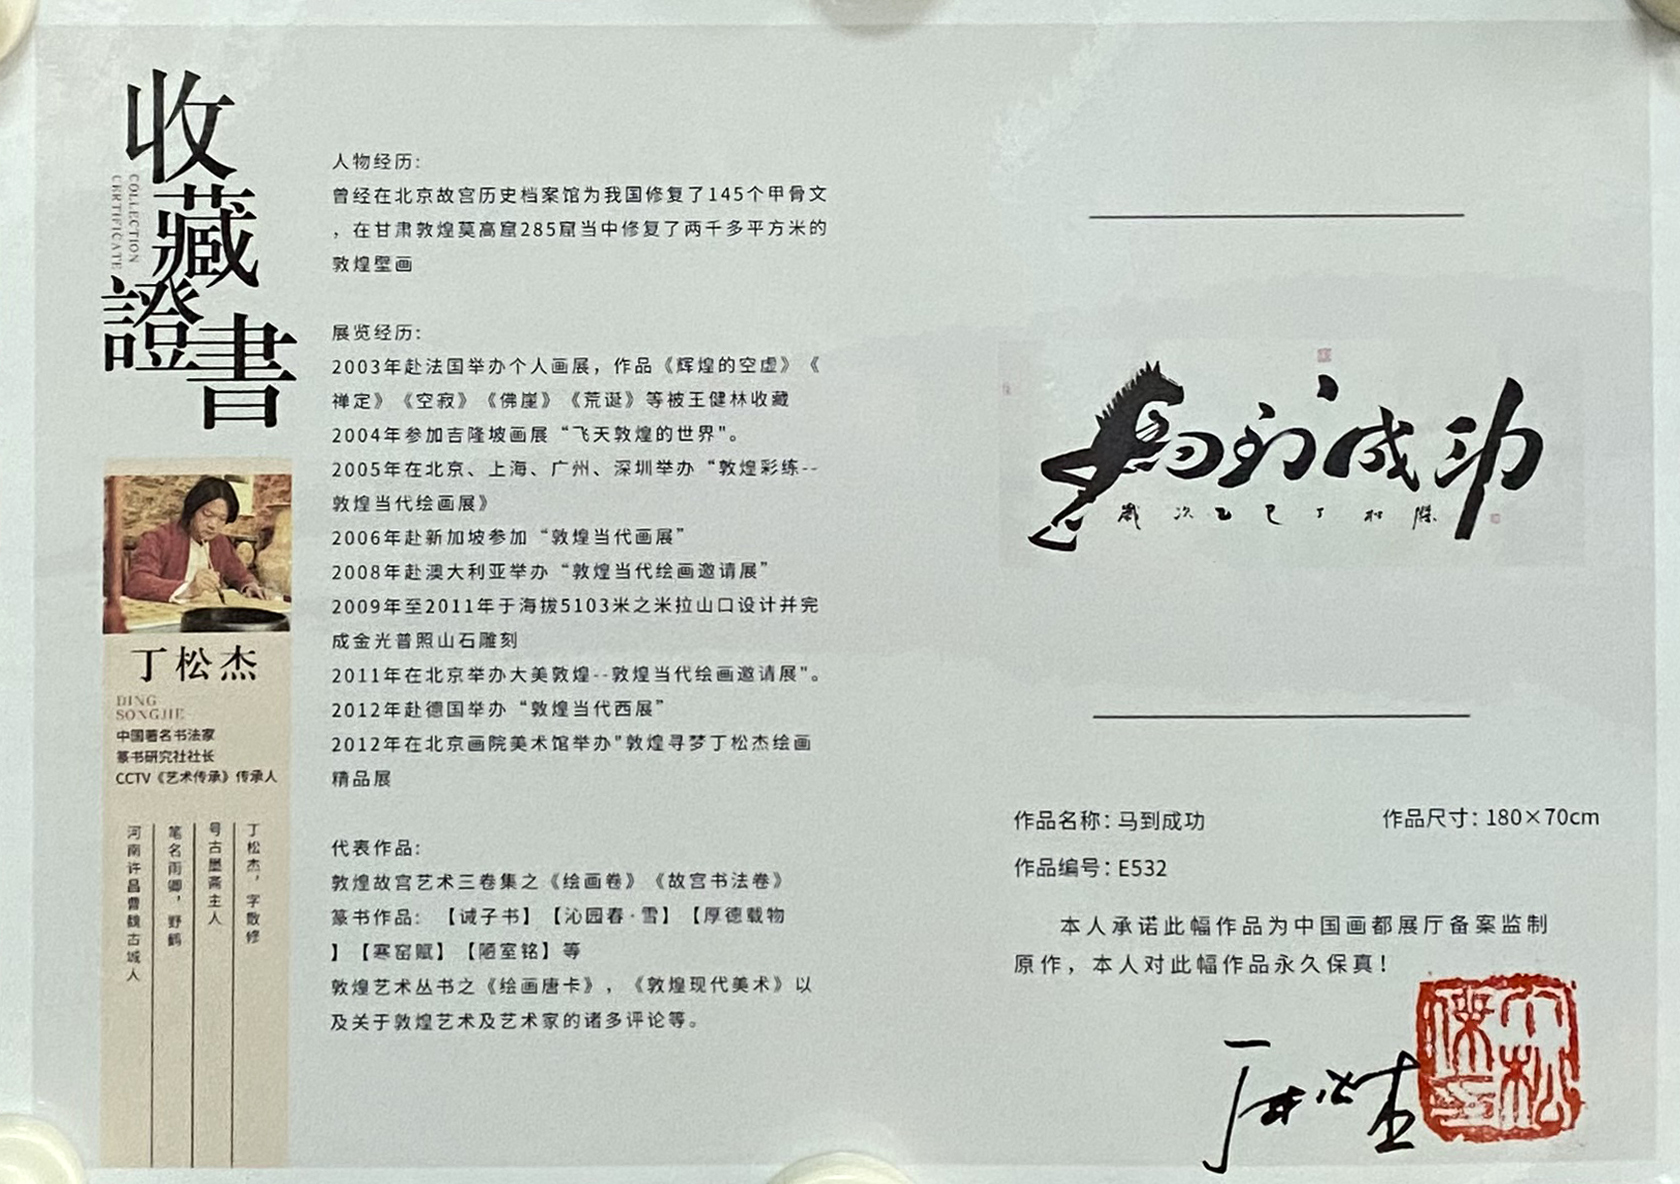 收藏證書
COLLECTION
CERTIFICATE
丁松杰
DING
SONGJIE
中国著名书法家
篆书研究社社长
CCTV《艺术传承》传承人
丁松杰，字散修
号古墨斋主人
笔名雨卿，野鹤
河南许昌曹魏古城人
人物经历：
曾经在北京故宫历史档案馆为我国修复了145个甲骨文
，在甘肃敦煌莫高窟285窟当中修复了两千多平方米的
敦煌壁画
展览经历：
2003年赴法国举办个人画展，作品《辉煌的空虚》《
禅定》《空寂》《佛崖》《荒诞》等被王健林收藏
2004年参加吉隆坡画展“飞天敦煌的世界"。
2005年在北京、上海、广州、深圳举办“敦煌彩练--
敦煌当代绘画展》
2006年赴新加坡参加“敦煌当代画展”
2008年赴澳大利亚举办“敦煌当代绘画邀请展”
2009年至2011年于海拔5103米之米拉山口设计并完
成金光普照山石雕刻
2011年在北京举办大美敦煌--敦煌当代绘画邀请展"。
2012年赴德国举办“敦煌当代西展”
2012年在北京画院美术馆举办"敦煌寻梦丁松杰绘画
精品展
代表作品：
敦煌故宫艺术三卷集之《绘画卷》《故宫书法卷》
篆书作品：【诫子书】【沁园春·雪】【厚德载物
】【寒窑赋】【陋室铭】等
敦煌艺术丛书之《绘画唐卡》，《敦煌现代美术》以
及关于敦煌艺术及艺术家的诸多评论等。
馬到成功
歲次乙巳丁松傑
作品名称：马到成功
作品尺寸：180×70cm
作品编号：E532
本人承诺此幅作品为中国画都展厅备案监制
原作，本人对此幅作品永久保真！
丁松杰